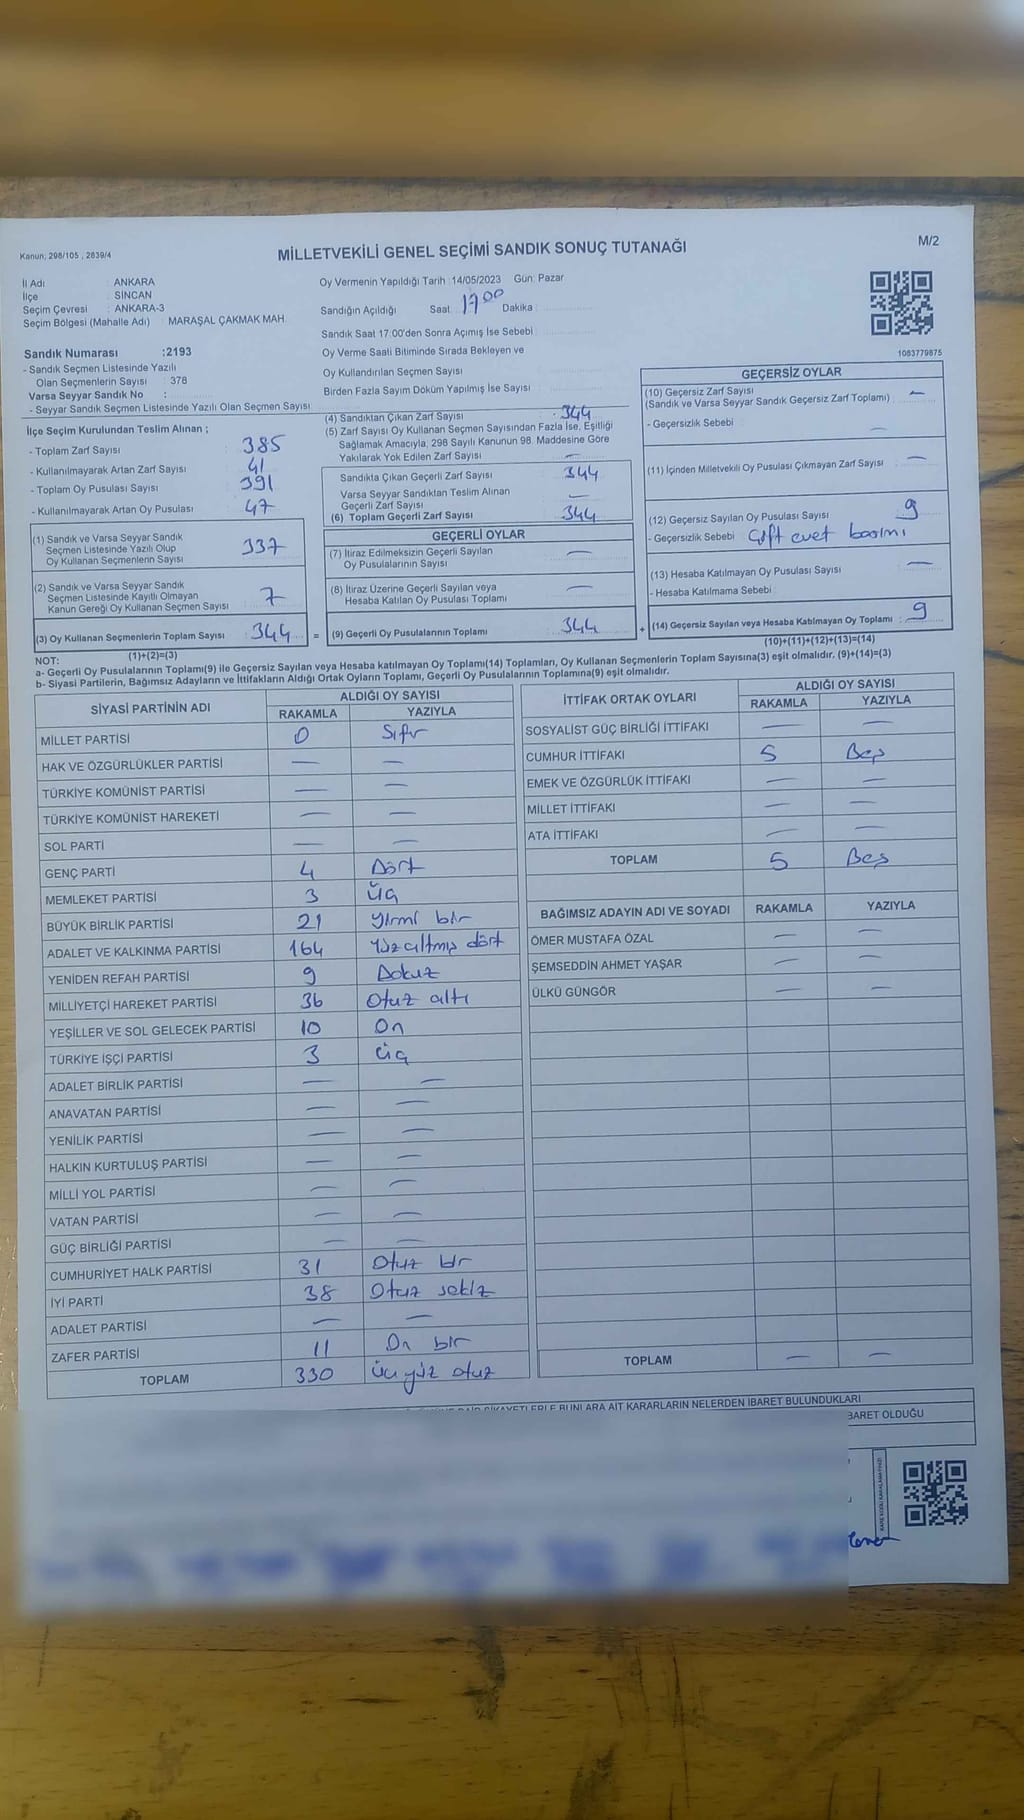 Kanun; 298/105 , 2839/4
MİLLETVEKİLİ GENEL SEÇİMİ SANDIK SONUÇ TUTANAĞI
M/2
İl Adı : ANKARA
İlçe : SİNCAN
Seçim Çevresi : ANKARA-3
Seçim Bölgesi (Mahalle Adı) : MARAŞAL ÇAKMAK MAH.
Sandık Numarası :2193
- Sandık Seçmen Listesinde Yazılı
Olan Seçmenlerin Sayısı : 378
Varsa Seyyar Sandık No :
- Seyyar Sandık Seçmen Listesinde Yazılı Olan Seçmen Sayısı
Oy Vermenin Yapıldığı Tarih :14/05/2023 Gün: Pazar
Sandığın Açıldığı Saat 17 00 Dakika
Sandık Saat 17:00'den Sonra Açımış İse Sebebi
Oy Verme Saati Bitiminde Sırada Bekleyen ve
Oy Kullandırılan Seçmen Sayısı
Birden Fazla Sayım Döküm Yapılmış İse Sayısı
1083779875
İlçe Seçim Kurulundan Teslim Alınan ;
- Toplam Zarf Sayısı 385
- Kullanılmayarak Artan Zarf Sayısı 41
- Toplam Oy Pusulası Sayısı 391
- Kullanılmayarak Artan Oy Pusulası 47
(1) Sandık ve Varsa Seyyar Sandık
Seçmen Listesinde Yazılı Olup
Oy Kullanan Seçmenlerin Sayısı 337
(2) Sandık ve Varsa Seyyar Sandık
Seçmen Listesinde Kayıtlı Olmayan
Kanun Gereği Oy Kullanan Seçmen Sayısı 7
(3) Oy Kullanan Seçmenlerin Toplam Sayısı : 344 =
(1)+(2)=(3)
(4) Sandıktan Çıkan Zarf Sayısı : 344
(5) Zarf Sayısı Oy Kullanan Seçmen Sayısından Fazla İse, Eşitliği
Sağlamak Amacıyla, 298 Sayılı Kanunun 98. Maddesine Göre
Yakılarak Yok Edilen Zarf Sayısı —
Sandıkta Çıkan Geçerli Zarf Sayısı 344
Varsa Seyyar Sandıktan Teslim Alınan
Geçerli Zarf Sayısı —
(6) Toplam Geçerli Zarf Sayısı 344
GEÇERLİ OYLAR
(7) İtiraz Edilmeksizin Geçerli Sayılan
Oy Pusulalarının Sayısı —
(8) İtiraz Üzerine Geçerli Sayılan veya
Hesaba Katılan Oy Pusulası Toplamı —
(9) Geçerli Oy Pusulalarının Toplamı 344 +
GEÇERSİZ OYLAR
(10) Geçersiz Zarf Sayısı
(Sandık ve Varsa Seyyar Sandık Geçersiz Zarf Toplamı) : —
- Geçersizlik Sebebi : —
(11) İçinden Milletvekili Oy Pusulası Çıkmayan Zarf Sayısı —
(12) Geçersiz Sayılan Oy Pusulası Sayısı 9
- Geçersizlik Sebebi Çift evet basımı
(13) Hesaba Katılmayan Oy Pusulası Sayısı —
- Hesaba Katılmama Sebebi :
(14) Geçersiz Sayılan veya Hesaba Katılmayan Oy Toplamı : 9
(10)+(11)+(12)+(13)=(14)
NOT:
a- Geçerli Oy Pusulalarının Toplamı(9) ile Geçersiz Sayılan veya Hesaba katılmayan Oy Toplamı(14) Toplamları, Oy Kullanan Seçmenlerin Toplam Sayısına(3) eşit olmalıdır. (9)+(14)=(3)
b- Siyasi Partilerin, Bağımsız Adayların ve İttifakların Aldığı Ortak Oyların Toplamı, Geçerli Oy Pusulalarının Toplamına(9) eşit olmalıdır.
SİYASİ PARTİNİN ADI ALDIĞI OY SAYISI
RAKAMLA YAZIYLA
MİLLET PARTİSİ 0 Sıfır
HAK VE ÖZGÜRLÜKLER PARTİSİ — —
TÜRKİYE KOMÜNİST PARTİSİ — —
TÜRKİYE KOMÜNİST HAREKETİ — —
SOL PARTİ — —
GENÇ PARTİ 4 Dört
MEMLEKET PARTİSİ 3 Üç
BÜYÜK BİRLİK PARTİSİ 21 Yirmi bir
ADALET VE KALKINMA PARTİSİ 164 Yüzaltmış dört
YENİDEN REFAH PARTİSİ 9 Dokuz
MİLLİYETÇİ HAREKET PARTİSİ 36 Otuz altı
YEŞİLLER VE SOL GELECEK PARTİSİ 10 On
TÜRKİYE İŞÇİ PARTİSİ 3 Üç
ADALET BİRLİK PARTİSİ — —
ANAVATAN PARTİSİ — —
YENİLİK PARTİSİ — —
HALKIN KURTULUŞ PARTİSİ — —
MİLLİ YOL PARTİSİ — —
VATAN PARTİSİ — —
GÜÇ BİRLİĞİ PARTİSİ — —
CUMHURİYET HALK PARTİSİ 31 Otuz bir
İYİ PARTİ 38 Otuz sekiz
ADALET PARTİSİ — —
ZAFER PARTİSİ 11 On bir
TOPLAM 330 Üç yüz otuz
İTTİFAK ORTAK OYLARI ALDIĞI OY SAYISI
RAKAMLA YAZIYLA
SOSYALİST GÜÇ BİRLİĞİ İTTİFAKI — —
CUMHUR İTTİFAKI 5 Beş
EMEK VE ÖZGÜRLÜK İTTİFAKI — —
MİLLET İTTİFAKI — —
ATA İTTİFAKI — —
TOPLAM 5 Beş
BAĞIMSIZ ADAYIN ADI VE SOYADI RAKAMLA YAZIYLA
ÖMER MUSTAFA ÖZAL — —
ŞEMSEDDİN AHMET YAŞAR — —
ÜLKÜ GÜNGÖR — —
TOPLAM — —
ŞİKAYETLERLE BUNLARA AİT KARARLARIN NELERDEN İBARET BULUNDUKLARI
BARET OLDUĞU